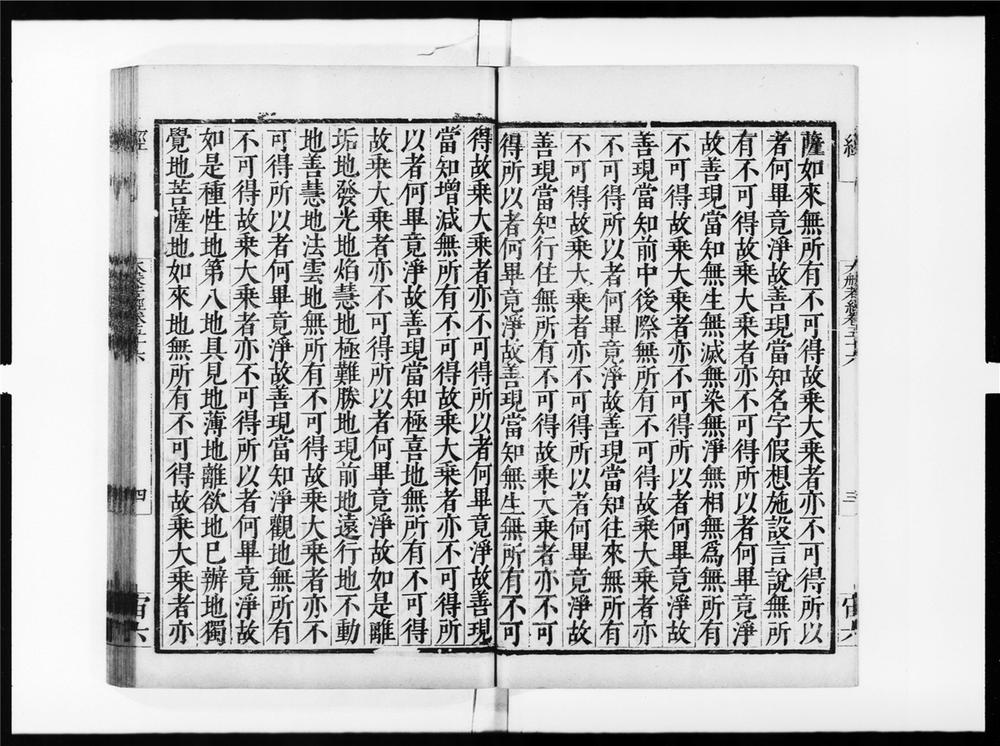 薩如來無所有不可得故乘大乘者亦不可得所以
者何畢竟淨故善現當知名字假想施設言說無所
有不可得故乘大乘者亦不可得所以者何畢竟淨
故善現當知無生無滅無染無淨無相無爲無所有
不可得故乘大乘者亦不可得所以者何畢竟淨故
善現當知前中後際無所有不可得故乘大乘者亦
不可得所以者何畢竟淨故善現當知往來無所有
不可得故乘大乘者亦不可得所以者何畢竟淨故
善現當知行住無所有不可得故乘大乘者亦不可
得所以者何畢竟淨故善現當知無生無所有不可
得故乘大乘者亦不可得所以者何畢竟淨故善現
當知增減無所有不可得故乘大乘者亦不可得所
以者何畢竟淨故善現當知極喜地無所有不可得
故乘大乘者亦不可得所以者何畢竟淨故如是離
垢地發光地焰慧地極難勝地現前地遠行地不動
地善慧地法雲地無所有不可得故乘大乘者亦不
可得所以者何畢竟淨故善現當知淨觀地無所有
不可得故乘大乘者亦不可得所以者何畢竟淨故
如是種性地第八地具見地薄地離欲地已辦地獨
覺地菩薩地如來地無所有不可得故乘大乘者亦
經 四
三